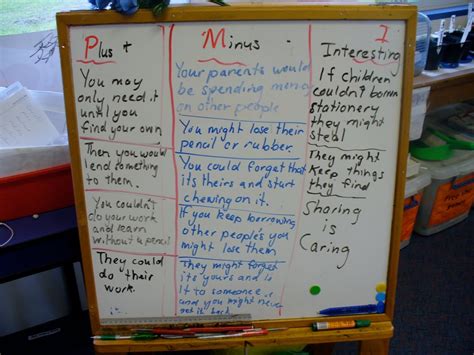 Plus +
You may
only need it
until you
find your own
Then you would
lend something
to them.
You couldn't
do your work
and learn
without a pencil
They could
do their work.
Minus -
Your parents would
be spending money
on other people
You might lose their
pencil or rubber.
You could forget that
its theirs and start
chewing on it.
If you keep borrowing
other people's you
might lose them
They might forget
its yours and
it to someone
and you might never
get it back
I
Interesting
If children
couldn't borrow
stationery
they might
steal
They might
keep things
they find
Sharing
is
Caring